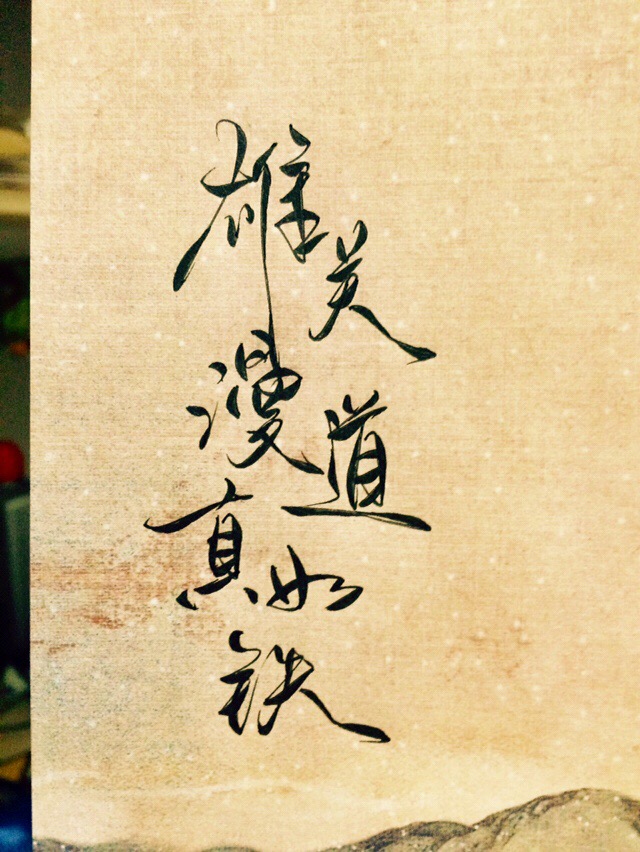 雄关
漫道
真如
铁